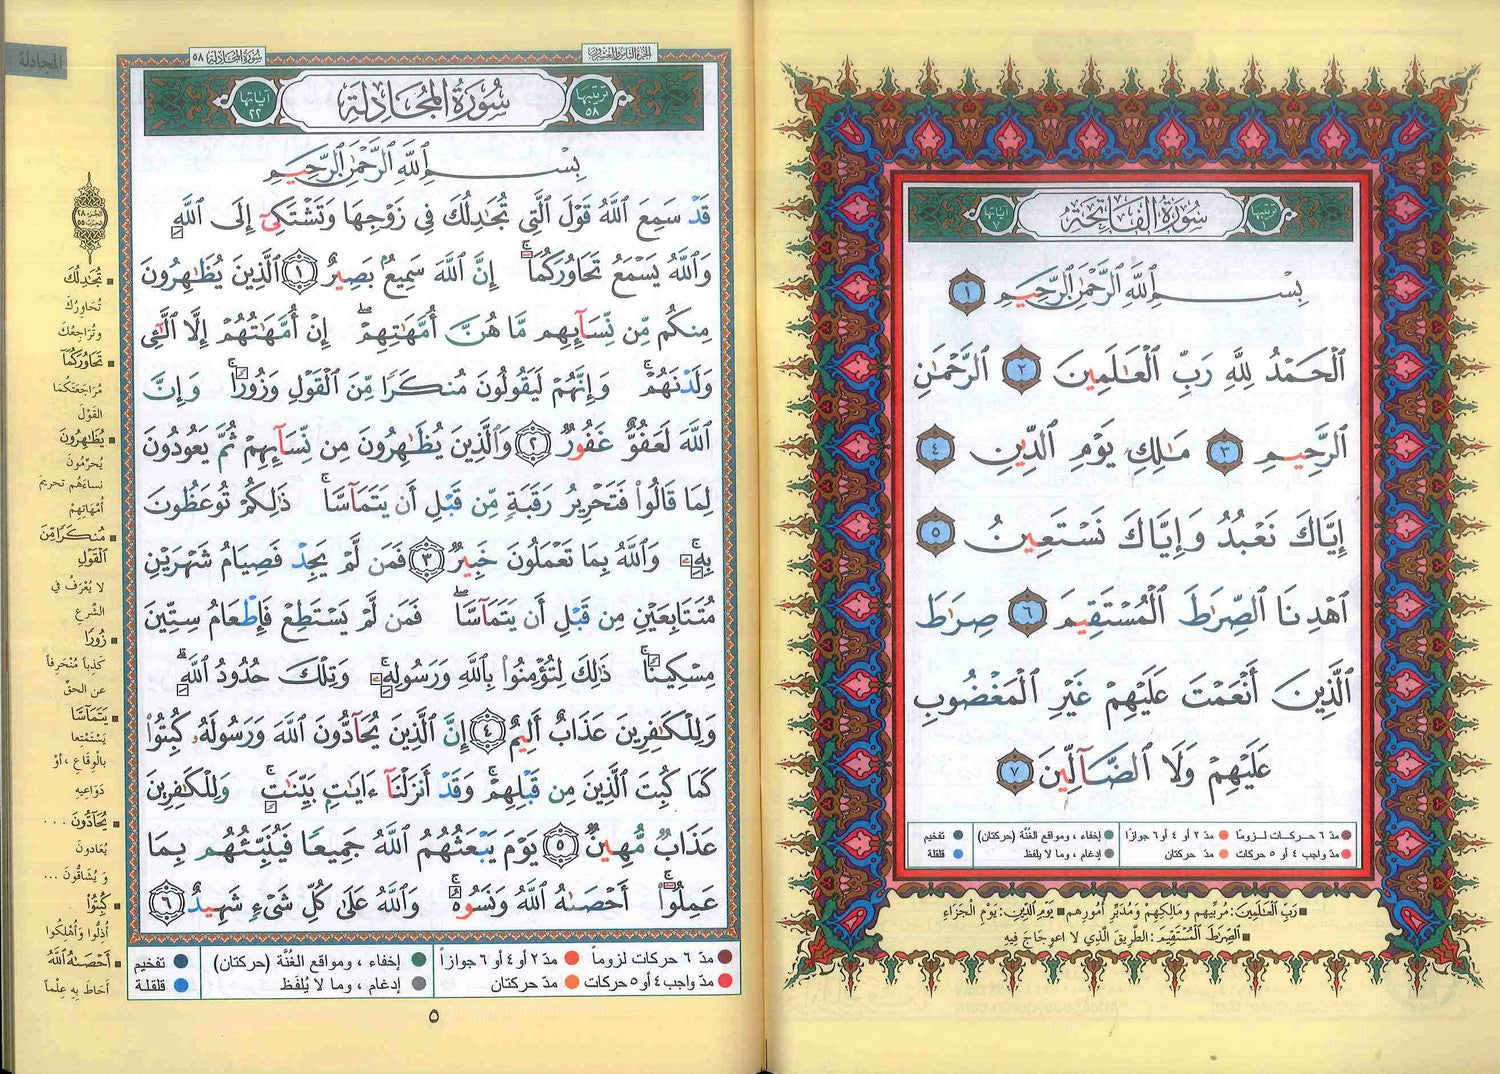 سُورَةُ الفَاتِحَةِ
ترتيبها ١
آياتها ٧
بِسْمِ ٱللَّهِ ٱلرَّحْمَٰنِ ٱلرَّحِيمِ ١
ٱلْحَمْدُ لِلَّهِ رَبِّ ٱلْعَٰلَمِينَ ٢ ٱلرَّحْمَٰنِ
ٱلرَّحِيمِ ٣ مَٰلِكِ يَوْمِ ٱلدِّينِ ٤
إِيَّاكَ نَعْبُدُ وَإِيَّاكَ نَسْتَعِينُ ٥
ٱهْدِنَا ٱلصِّرَٰطَ ٱلْمُسْتَقِيمَ ٦ صِرَٰطَ
ٱلَّذِينَ أَنْعَمْتَ عَلَيْهِمْ غَيْرِ ٱلْمَغْضُوبِ
عَلَيْهِمْ وَلَا ٱلضَّآلِّينَ ٧
مدّ ٦ حركات لزوماً مدّ ٢ أو ٤ أو ٦ جوازاً إخفاء ، ومواقع الغُنَّة (حركتان) تفخيم
مدّ واجب ٤ أو ٥ حركات مدّ حركتان إدغام ، وما لا يلفظ قلقلة
رَبِّ ٱلْعَٰلَمِينَ: مُرَبِّيهِم وَمَالِكِهِمْ وَمُدَبِّرِ أُمُورِهِم يَوْمِ ٱلدِّينِ: يَوْمِ الْجَزَاءِ
ٱلصِّرَٰطَ ٱلْمُسْتَقِيمَ: الطَّرِيقَ الَّذِي لا اعوِجَاجَ فِيهِ
المجادلة
سُورَةُ المُجَادلة ٥٨
الجزء الثامن والعشرون
سُورَةُ المُجَادلَةِ
ترتيبها ٥٨
آياتها ٢٢
بِسْمِ ٱللَّهِ ٱلرَّحْمَٰنِ ٱلرَّحِيمِ
قَدْ سَمِعَ ٱللَّهُ قَوْلَ ٱلَّتِى تُجَٰدِلُكَ فِى زَوْجِهَا وَتَشْتَكِىٓ إِلَى ٱللَّهِ
وَٱللَّهُ يَسْمَعُ تَحَاوُرَكُمَآ ۚ إِنَّ ٱللَّهَ سَمِيعٌۢ بَصِيرٌ ١ ٱلَّذِينَ يُظَٰهِرُونَ
مِنكُم مِّن نِّسَآئِهِم مَّا هُنَّ أُمَّهَٰتِهِمْ ۖ إِنْ أُمَّهَٰتُهُمْ إِلَّا ٱلَّٰٓـِٔى
وَلَدْنَهُمْ ۚ وَإِنَّهُمْ لَيَقُولُونَ مُنكَرًا مِّنَ ٱلْقَوْلِ وَزُورًا ۚ وَإِنَّ
ٱللَّهَ لَعَفُوٌّ غَفُورٌ ٢ وَٱلَّذِينَ يُظَٰهِرُونَ مِن نِّسَآئِهِمْ ثُمَّ يَعُودُونَ
لِمَا قَالُوا۟ فَتَحْرِيرُ رَقَبَةٍ مِّن قَبْلِ أَن يَتَمَآسَّا ۚ ذَٰلِكُمْ تُوعَظُونَ
بِهِۦ ۚ وَٱللَّهُ بِمَا تَعْمَلُونَ خَبِيرٌ ٣ فَمَن لَّمْ يَجِدْ فَصِيَامُ شَهْرَيْنِ
مُتَتَابِعَيْنِ مِن قَبْلِ أَن يَتَمَآسَّا ۖ فَمَن لَّمْ يَسْتَطِعْ فَإِطْعَامُ سِتِّينَ
مِسْكِينًا ۚ ذَٰلِكَ لِتُؤْمِنُوا۟ بِٱللَّهِ وَرَسُولِهِۦ ۚ وَتِلْكَ حُدُودُ ٱللَّهِ ۗ
وَلِلْكَٰفِرِينَ عَذَابٌ أَلِيمٌ ٤ إِنَّ ٱلَّذِينَ يُحَآدُّونَ ٱللَّهَ وَرَسُولَهُۥ كُبِتُوا۟
كَمَا كُبِتَ ٱلَّذِينَ مِن قَبْلِهِمْ ۚ وَقَدْ أَنزَلْنَآ ءَايَٰتٍۭ بَيِّنَٰتٍ ۚ وَلِلْكَٰفِرِينَ
عَذَابٌ مُّهِينٌ ٥ يَوْمَ يَبْعَثُهُمُ ٱللَّهُ جَمِيعًا فَيُنَبِّئُهُم بِمَا
عَمِلُوٓا۟ ۚ أَحْصَىٰهُ ٱللَّهُ وَنَسُوهُ ۚ وَٱللَّهُ عَلَىٰ كُلِّ شَىْءٍ شَهِيدٌ ٦
تُجَٰدِلُكَ
تُحَاوِرُكَ
وتُرَاجِعُكَ
تَحَاوُرَكُمَا
مُرَاجَعَتَكُمَا
القَوْلَ
يُظَٰهِرُونَ
يُحَرِّمُونَ
نساءَهُم تحريمَ
أُمَّهَاتِهِمْ
مُنكَرًا مِّنَ
ٱلْقَوْلِ
لا يُعْرَفُ في
الشَّرعِ
زُورًا
كَذِباً مُنْحَرِفاً
عن الحقِّ
يَتَمَآسَّا
يَسْتَمْتِعا
بالْوِقَاعِ ، أوْ
دَوَاعِيهِ
يُحَآدُّونَ ...
يُعَادونَ
و يُشَاقُّونَ ...
كُبِتُوا۟
أُذِلُّوا وَأُهْلِكُوا
أَحْصَىٰهُ ٱللَّهُ
أحَاطَ بِهِ عِلْماً
مدّ ٦ حركات لزوماً مدّ ٢ أو ٤ أو ٦ جوازاً إخفاء ، ومواقع الغُنَّة (حركتان) تفخيم
مدّ واجب ٤ أو ٥ حركات مدّ حركتان إدغام ، وما لا يُلفَظ قلقلة
٥